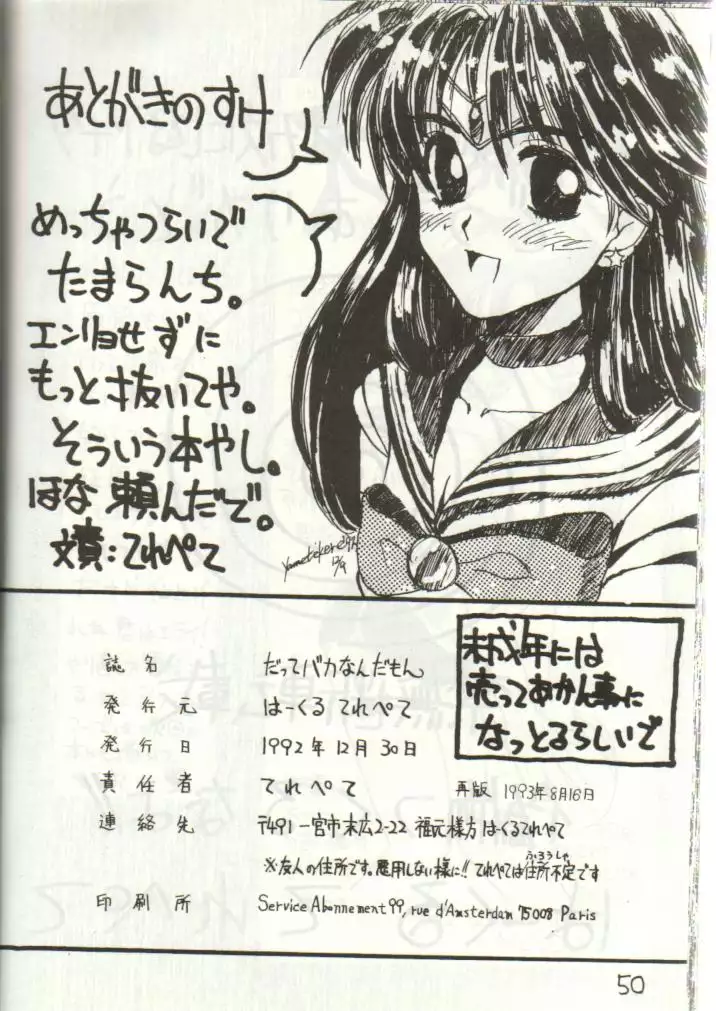 あとがきのすけ
めっちゃつらいで
たまらんち。
エンリョせずに
もっと抜いてや。
そういう本やし。
ほな 頼んだで。
文責:てれぺて
未成年には
売ってあかん事に
なっとるらしいで
誌名 だってバカなんだもん
発行元 はーくる てれぺて
発行日 1992年12月30日
責任者 てれぺて 再版 1993年8月16日
連絡先 〒491 一宮市末広2-22 福元様方 はーくるてれぺて
※友人の住所です。悪用しない様に!! てれぺては住所不定です
ふろうしゃ
印刷所 Service Abonnement 99, rue d'Amsterdam 75008 Paris
50